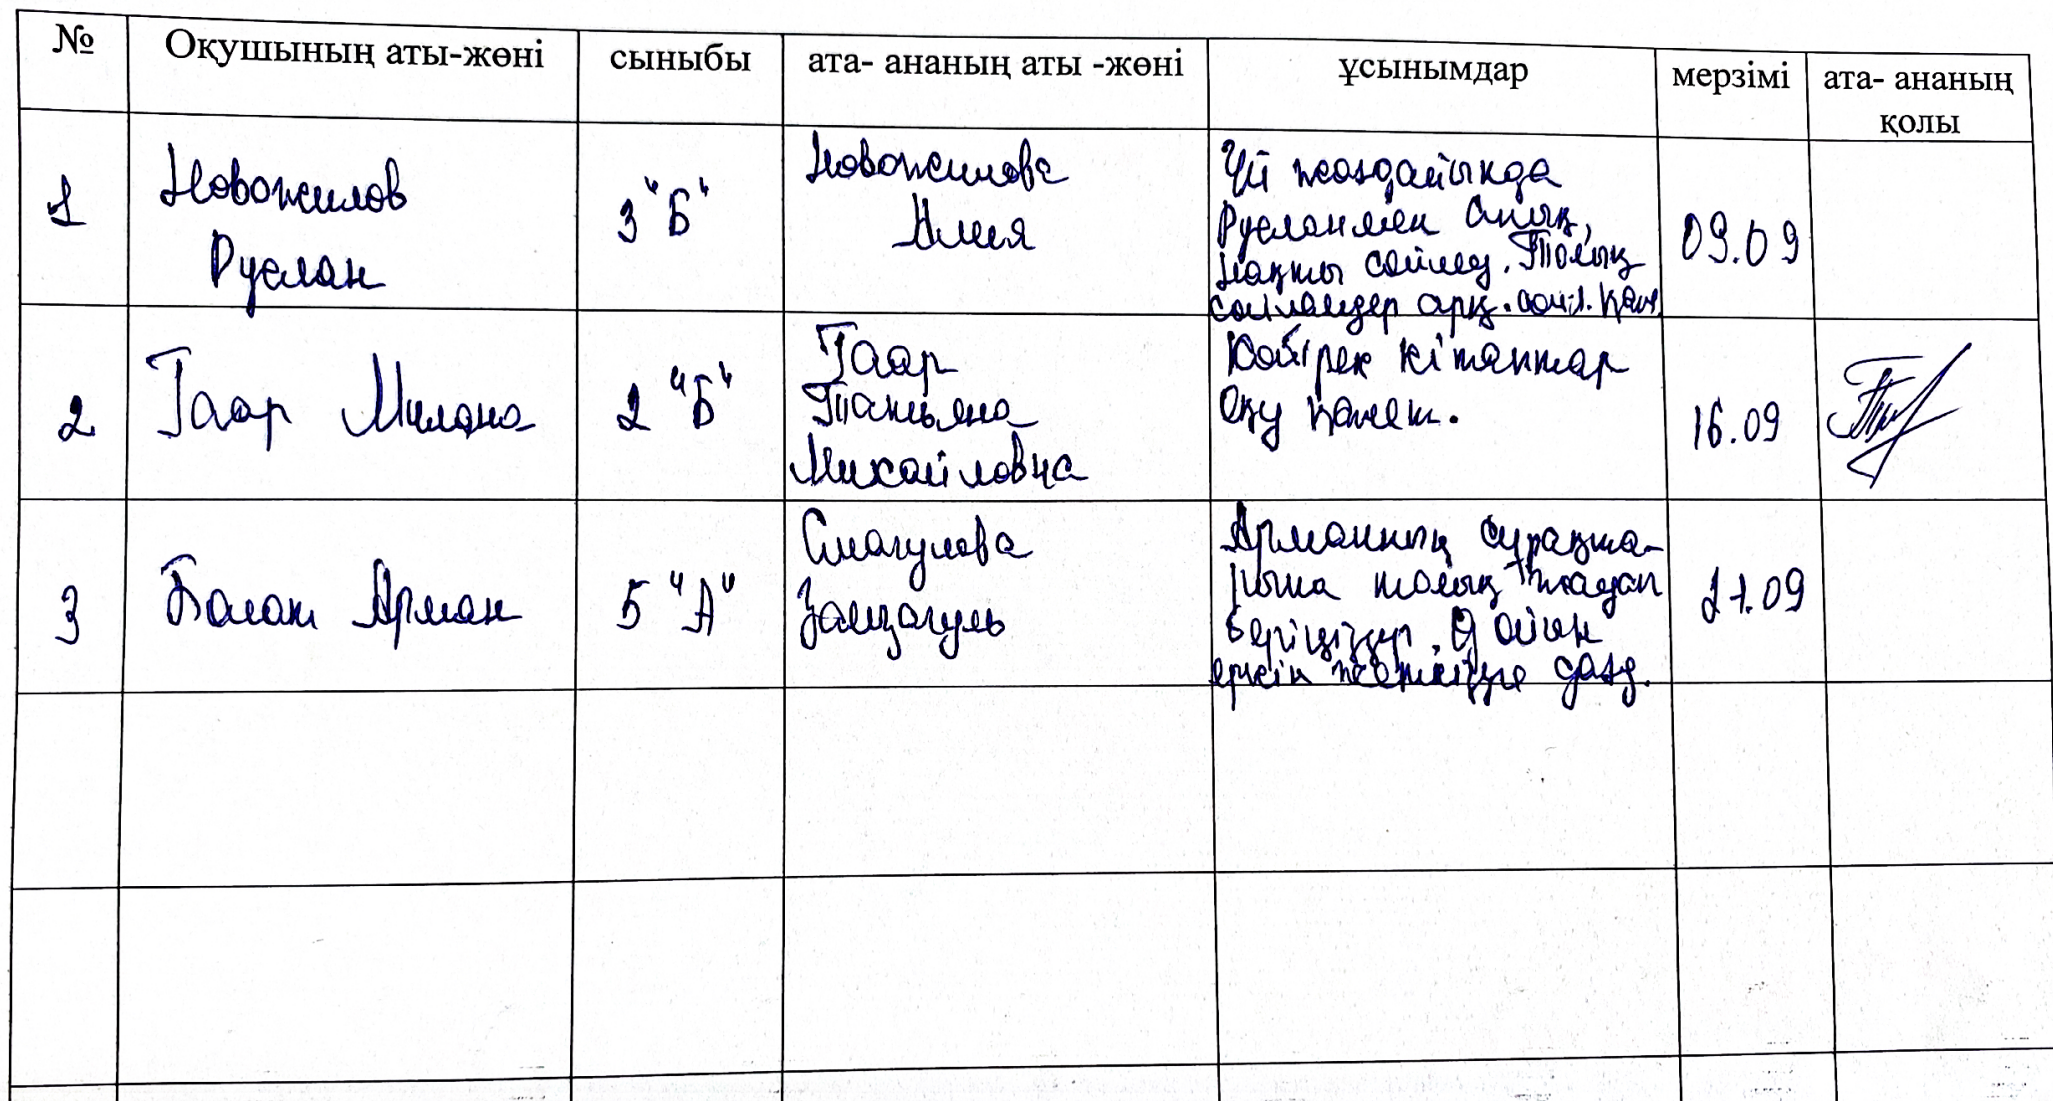 № Оқушының аты-жөні сыныбы ата- ананың аты -жөні ұсынымдар мерзімі ата- ананың қолы
1 Новожилов Руслан 3 "Б" Новожилова Алия Үй жағдайында
Русланмен анық,
нақты сөйлеу. Толық
сөйлемдер арқ. сөйл. қаж. 09.09
2 Гаар Милана 2 "Б" Гаар
Татьяна
Михайловна Көбірек кітаптар
оқу қажет. 16.09
3 Болат Арман 5 "А" Смагулова
Арманның сұрақта-
рына толық жауап
беріңіздер. Ә ойын
еркін жеткізуге дағд. 21.09